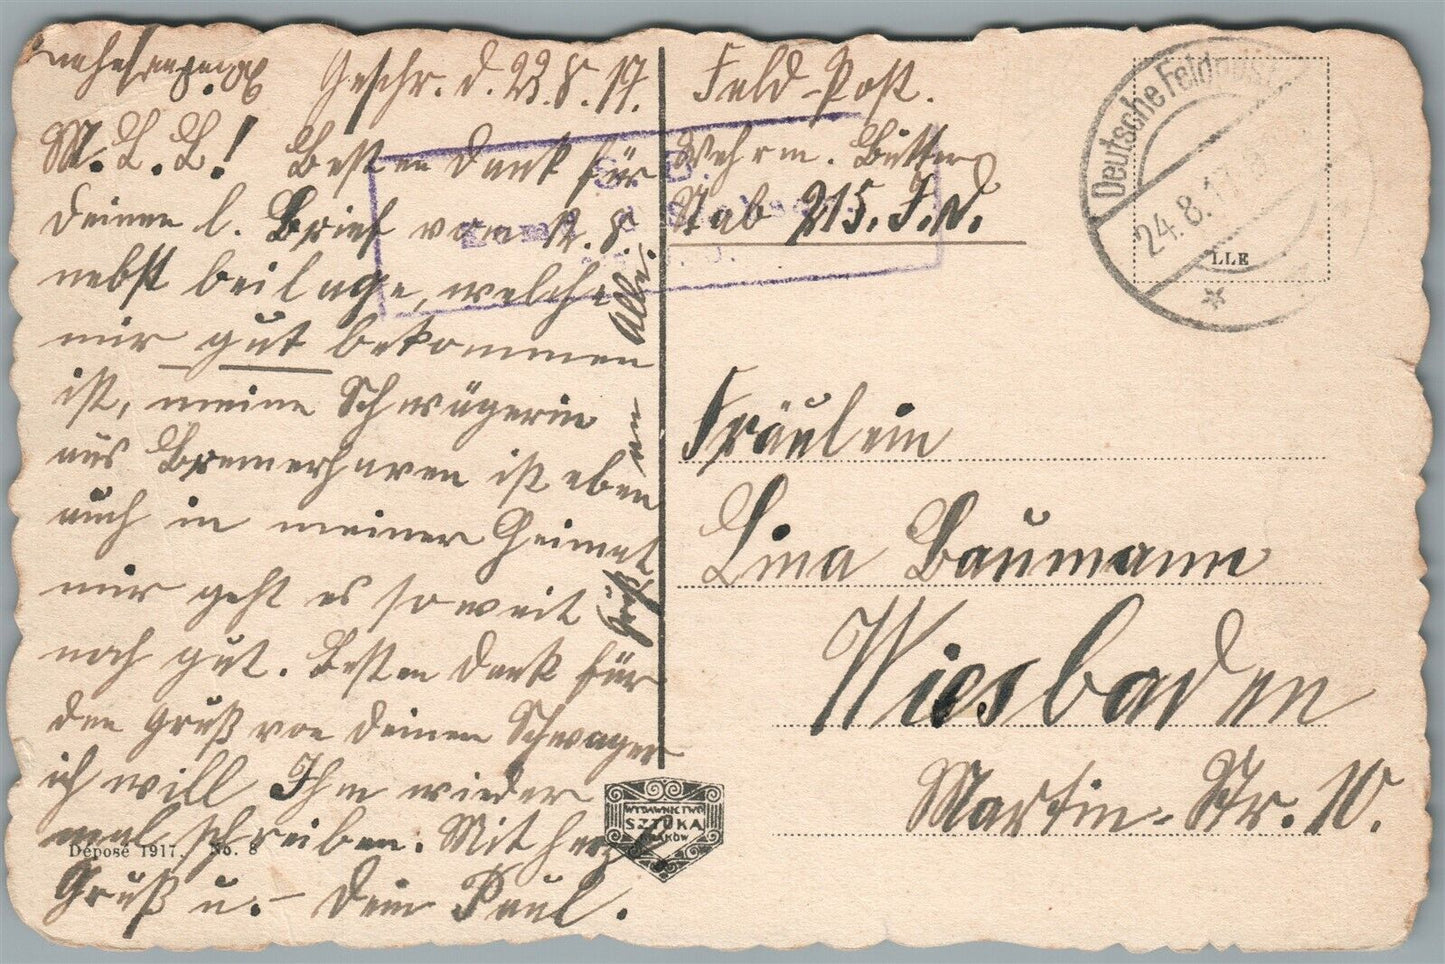 Geschr. d. 23.8.17.
M. L. L! Besten Dank für
Deinen l. Brief vom 12. 8.
nebst Beilage, welche
mir gut bekommen
ist, meine Schwägerin
aus Bremerhaven ist eben
auch in meiner Heimat
mir geht es soweit
noch gut. Besten Dank für
den Gruß von Deinem Schwager
ich will Ihm wieder
mal schreiben. Mit herzl.
Gruß u. – Dein Paul.
an Alle.
Feld-Post.
Wehrm.
Stab 215. J.D.
Fräulein
Lina Baumann
Wiesbaden
Martin-Str. 10.
Deutsche Feldpost
24.8.17
LLE
S.B.
WYDAWNICTWO
SZTUKA
KRAKÓW
Déposé 1917. No. 8